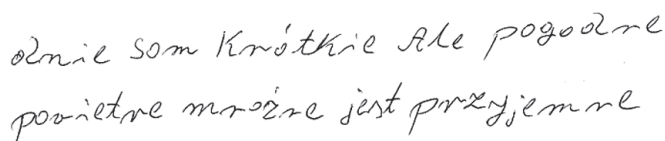 dnie som Krótkie Ale pogodne
povietre mroźne jest przyjemne